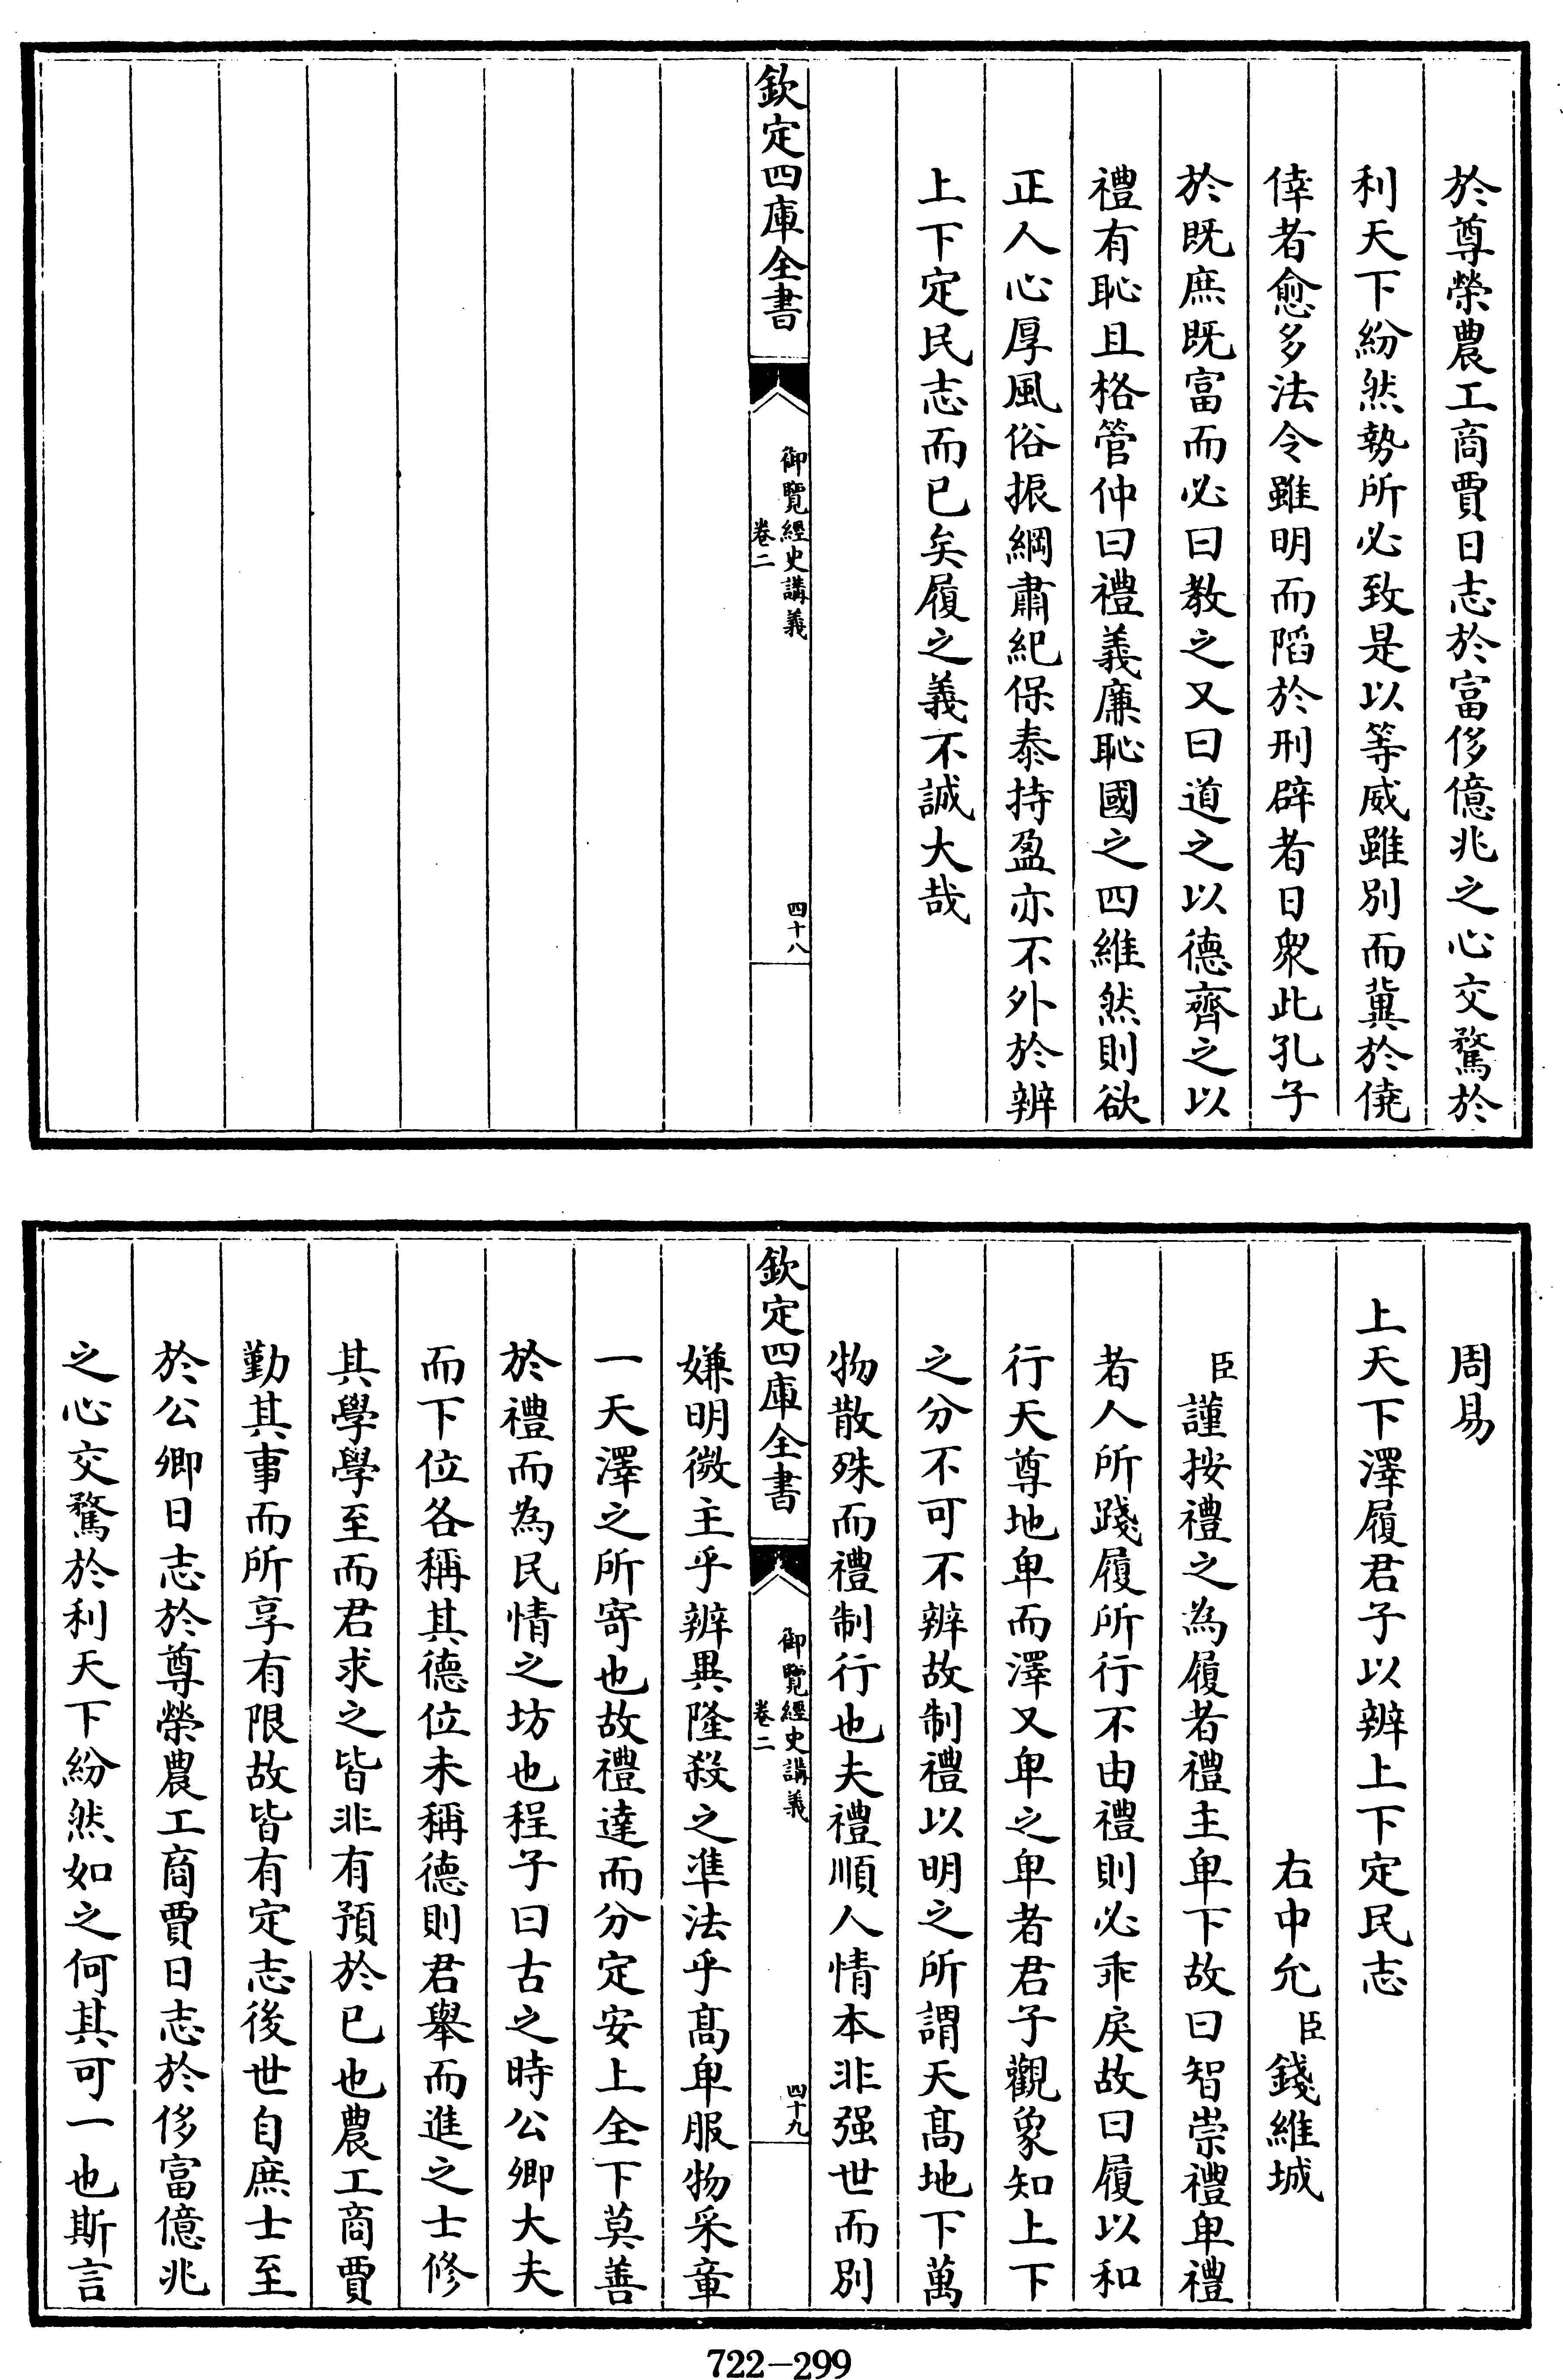 於尊榮農工商賈日志於富侈億兆之心交騖於
利天下紛然勢所必致是以等威雖別而冀於僥
倖者愈多法令雖明而陷於刑辟者日衆此孔子
於既庶既富而必曰教之又曰道之以德齊之以
禮有恥且格管仲曰禮義廉恥國之四維然則欲
正人心厚風俗振綱肅紀保泰持盈亦不外於辨
上下定民志而已矣履之義不誠大哉
欽定四庫全書
御覽經史講義
卷二
四十八
周易
上天下澤履君子以辨上下定民志
右中允臣錢維城
臣謹按禮之為履者禮主卑下故曰智崇禮卑禮
者人所踐履所行不由禮則必乖戾故曰履以和
行天尊地卑而澤又卑之卑者君子觀象知上下
之分不可不辨故制禮以明之所謂天髙地下萬
物散殊而禮制行也夫禮順人情本非强世而別
欽定四庫全書
御覽經史講義
卷二
四十九
嫌明微主乎辨異隆殺之準法乎髙卑服物采章
一天澤之所寄也故禮達而分定安上全下莫善
於禮而為民情之坊也程子曰古之時公卿大夫
而下位各稱其德位未稱德則君舉而進之士修
其學學至而君求之皆非有預於已也農工商賈
勤其事而所享有限故皆有定志後世自庶士至
於公卿日志於尊榮農工商賈日志於侈富億兆
之心交騖於利天下紛然如之何其可一也斯言
722-299